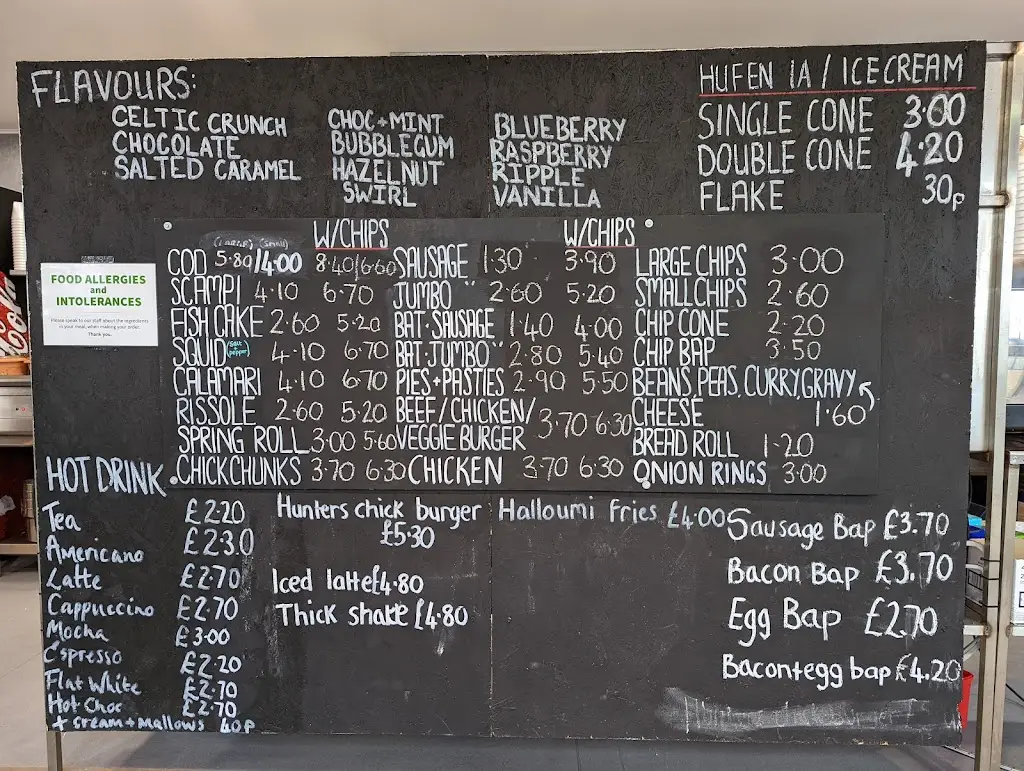 FLAVOURS:
CELTIC CRUNCH
CHOCOLATE
SALTED CARAMEL
CHOC+MINT
BUBBLEGUM
HAZELNUT
SWIRL
BLUEBERRY
RASPBERRY
RIPPLE
VANILLA
HUFEN IA / ICE CREAM
SINGLE CONE 3·00
DOUBLE CONE 4·20
FLAKE 30p
FOOD ALLERGIES
and
INTOLERANCES
Please speak to our staff about the ingredients
in your meal, when making your order.
Thank you.
W/CHIPS
(LARGE) (Small)
COD 5·80/4·00 8·40/6·60
SCAMPI 4·10 6·70
FISH CAKE 2·60 5·20
SQUID (salt + pepper) 4·10 6·70
CALAMARI 4·10 6·70
RISSOLE 2·60 5·20
SPRING ROLL 3·00 5·60
CHICK CHUNKS 3·70 6·30
W/CHIPS
SAUSAGE 1·30 3·90
JUMBO " 2·60 5·20
BAT·SAUSAGE 1·40 4·00
BAT.JUMBO " 2·80 5·40
PIES+PASTIES 2·90 5·50
BEEF/CHICKEN/
VEGGIE BURGER 3·70 6·30
CHICKEN 3·70 6·30
LARGE CHIPS 3·00
SMALL CHIPS 2·60
CHIP CONE 2·20
CHIP BAP 3·50
BEANS, PEAS, CURRY, GRAVY
CHEESE 1·60
BREAD ROLL 1·20
ONION RINGS 3·00
HOT DRINK
Tea £2·20
Americano £2·30
Latte £2·70
Cappuccino £2·70
Mocha £3·00
Espresso £2·20
Flat White £2·70
Hot Choc £2·70
+ cream+Mallows 40p
Hunters chick burger
£5·30
Iced latte £4·80
Thick shake £4·80
Halloumi fries £4·00
Sausage Bap £3.70
Bacon Bap £3.70
Egg Bap £2.70
Bacon+egg bap £4.20